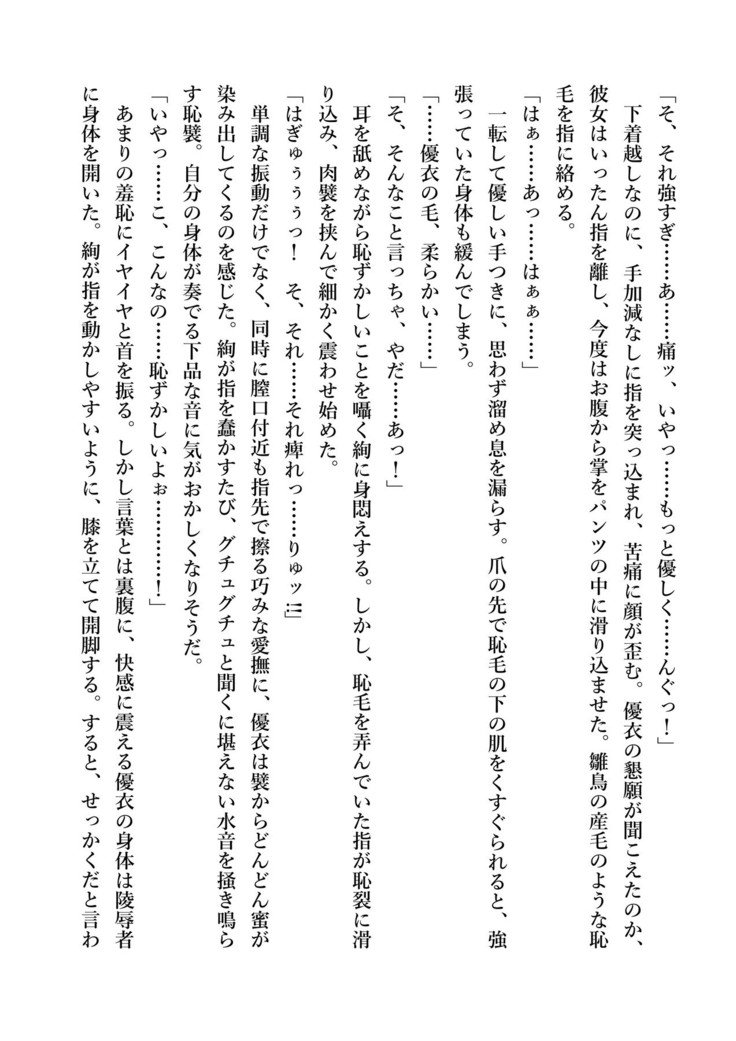 「そ、それ強すぎ……あ……痛ッ、いやっ……もっと優しく……んぐっ！」
下着越しなのに、手加減なしに指を突っ込まれ、苦痛に顔が歪む。優衣の懇願が聞こえたのか、
彼女はいったん指を離し、今度はお腹から掌をパンツの中に滑り込ませた。雛鳥の産毛のような恥
毛を指に絡める。
「はぁ……あっ……はぁぁ……」
一転して優しい手つきに、思わず溜め息を漏らす。爪の先で恥毛の下の肌をくすぐられると、強
張っていた身体も緩んでしまう。
「……優衣の毛、柔らかい……」
「そ、そんなこと言っちゃ、やだ……あっ！」
耳を舐めながら恥ずかしいことを囁く絢に身悶えする。しかし、恥毛を弄んでいた指が恥裂に滑
り込み、肉襞を挟んで細かく震わせ始めた。
「はぎゅぅぅぅっ！　そ、それ……それ痺れっ……りゅッ!!」
単調な振動だけでなく、同時に膣口付近も指先で擦る巧みな愛撫に、優衣は襞からどんどん蜜が
染み出してくるのを感じた。絢が指を蠢かすたび、グチュグチュと聞くに堪えない水音を掻き鳴ら
す恥襞。自分の身体が奏でる下品な音に気がおかしくなりそうだ。
「いやっ……こ、こんなの……恥ずかしいよぉ…………！」
あまりの羞恥にイヤイヤと首を振る。しかし言葉とは裏腹に、快感に震える優衣の身体は陵辱者
に身体を開いた。絢が指を動かしやすいように、膝を立てて開脚する。すると、せっかくだと言わ